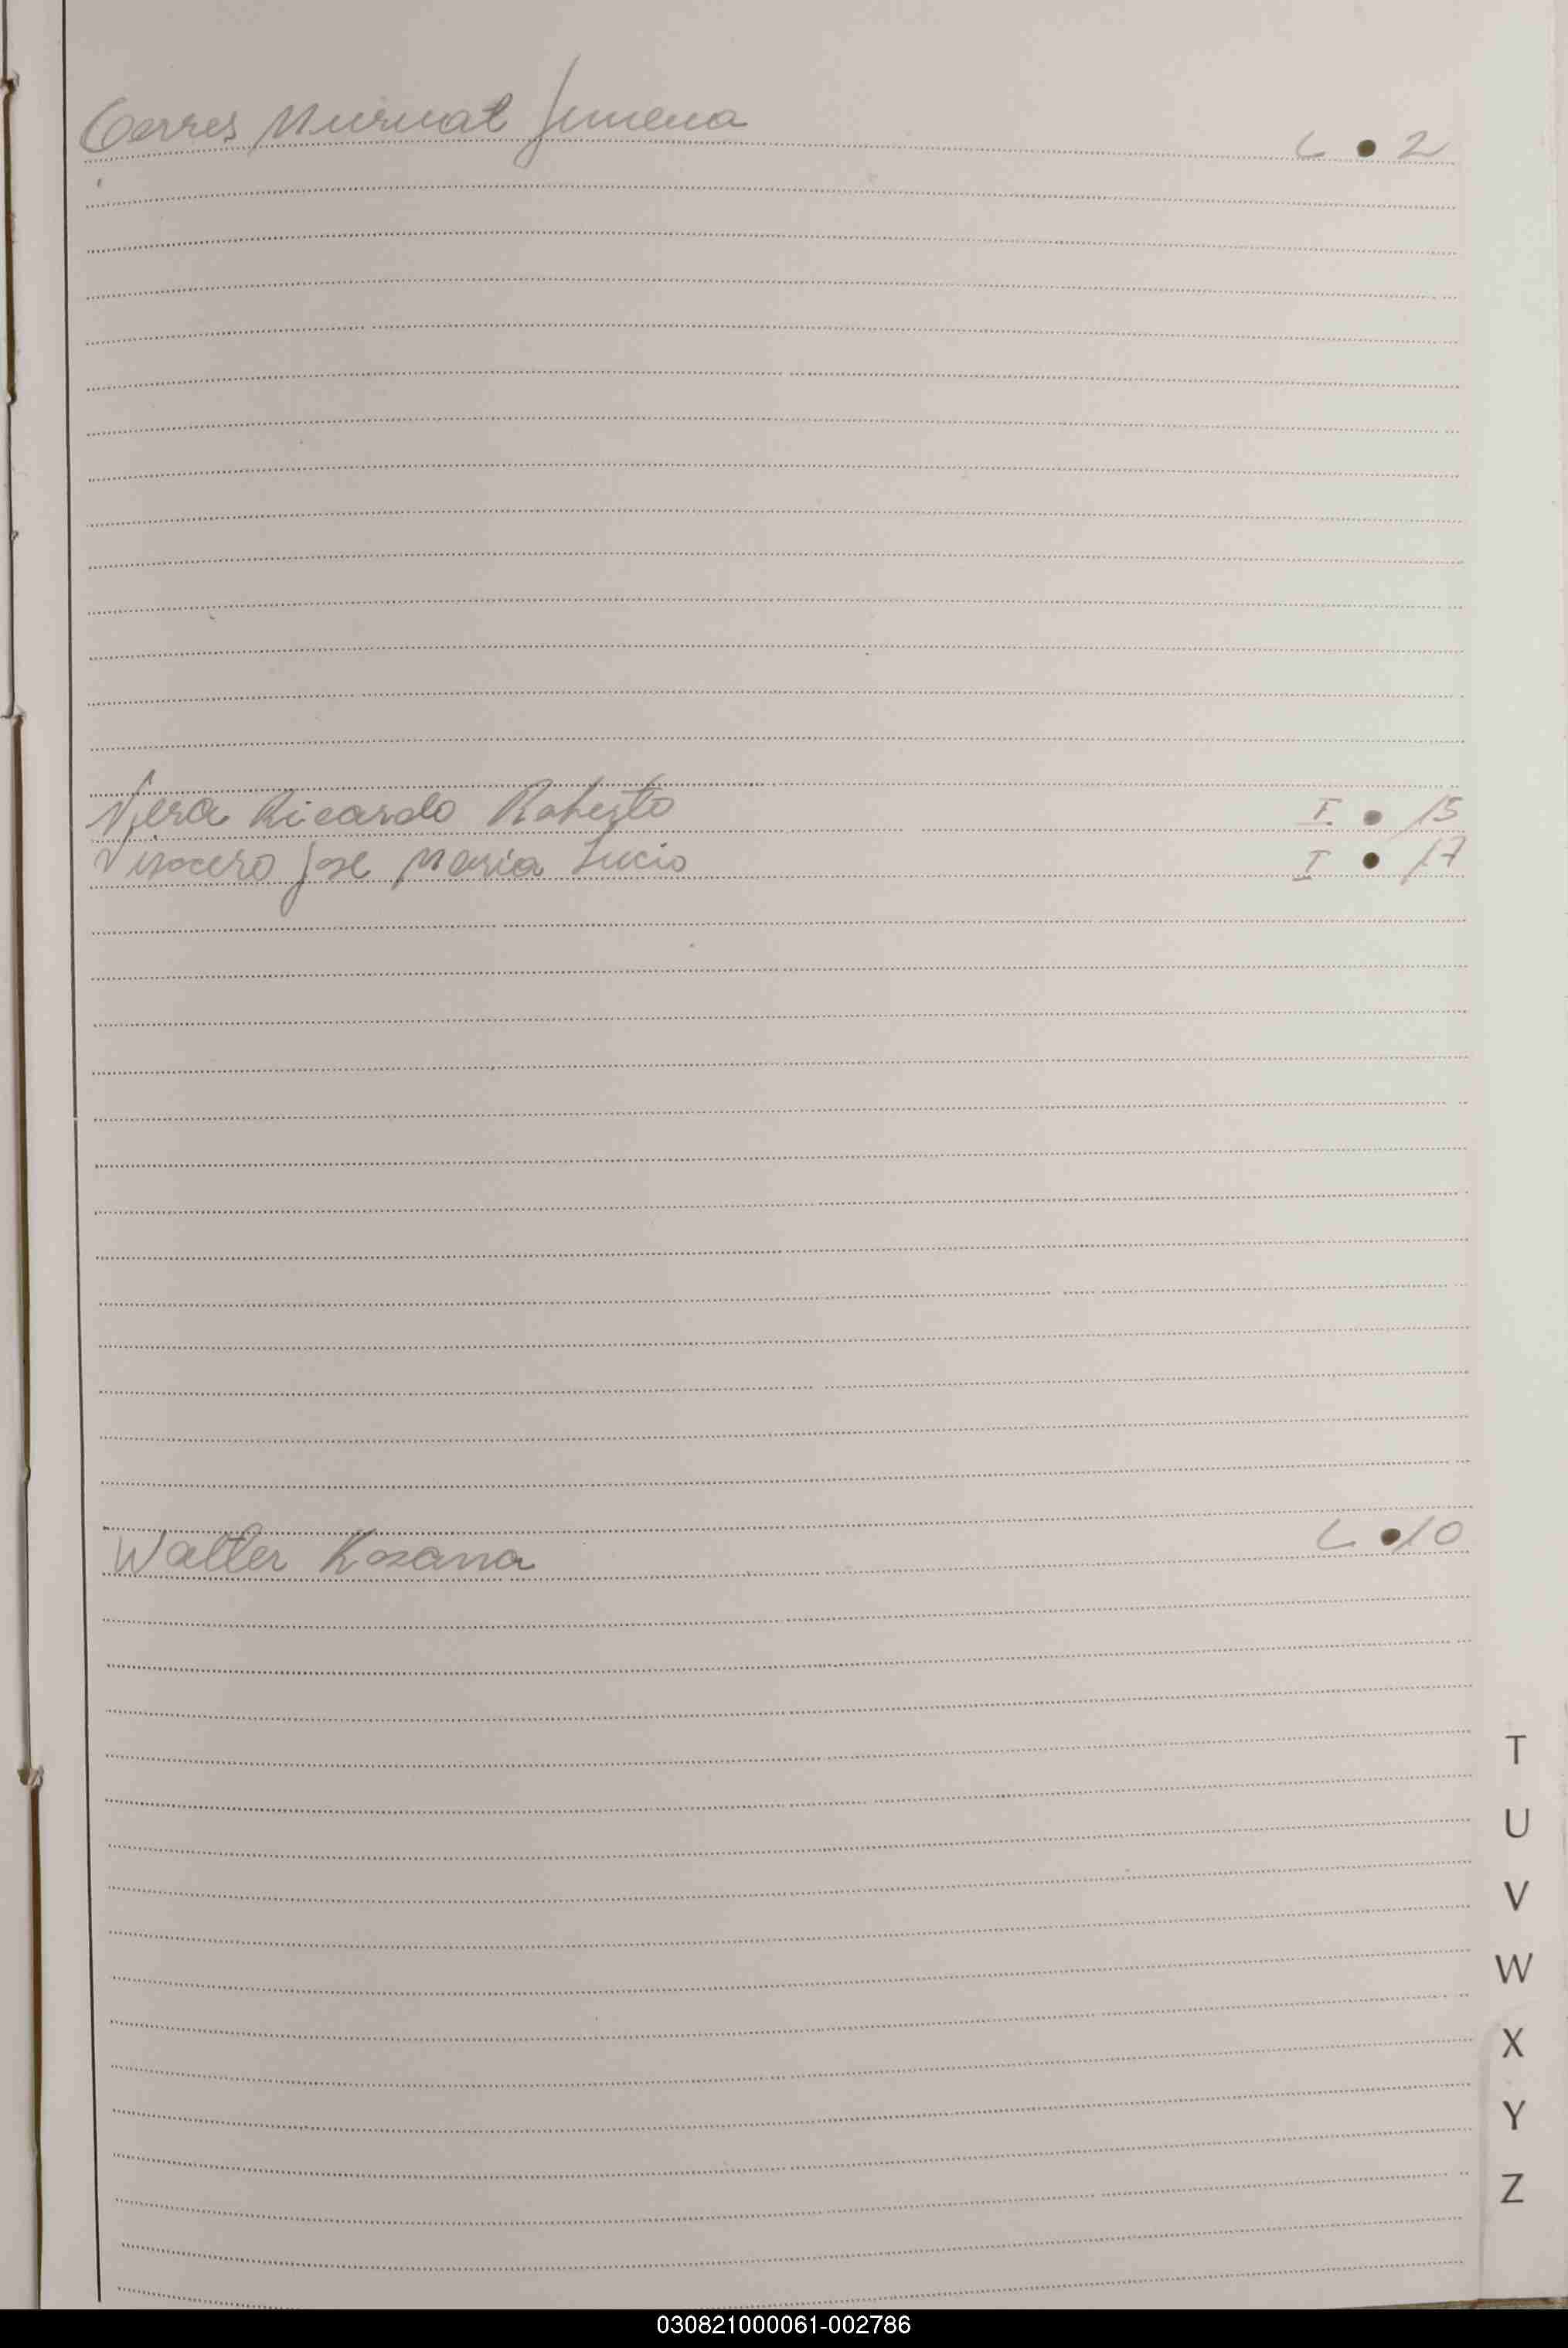 Torres Murual Jimena L • 2
Vera Ricardo Roberto I. • 15
Viscero Jose Maria Lucio I • 17
Walter Rosana L • 10
T
U
V
W
X
Y
Z
030821000061-002786